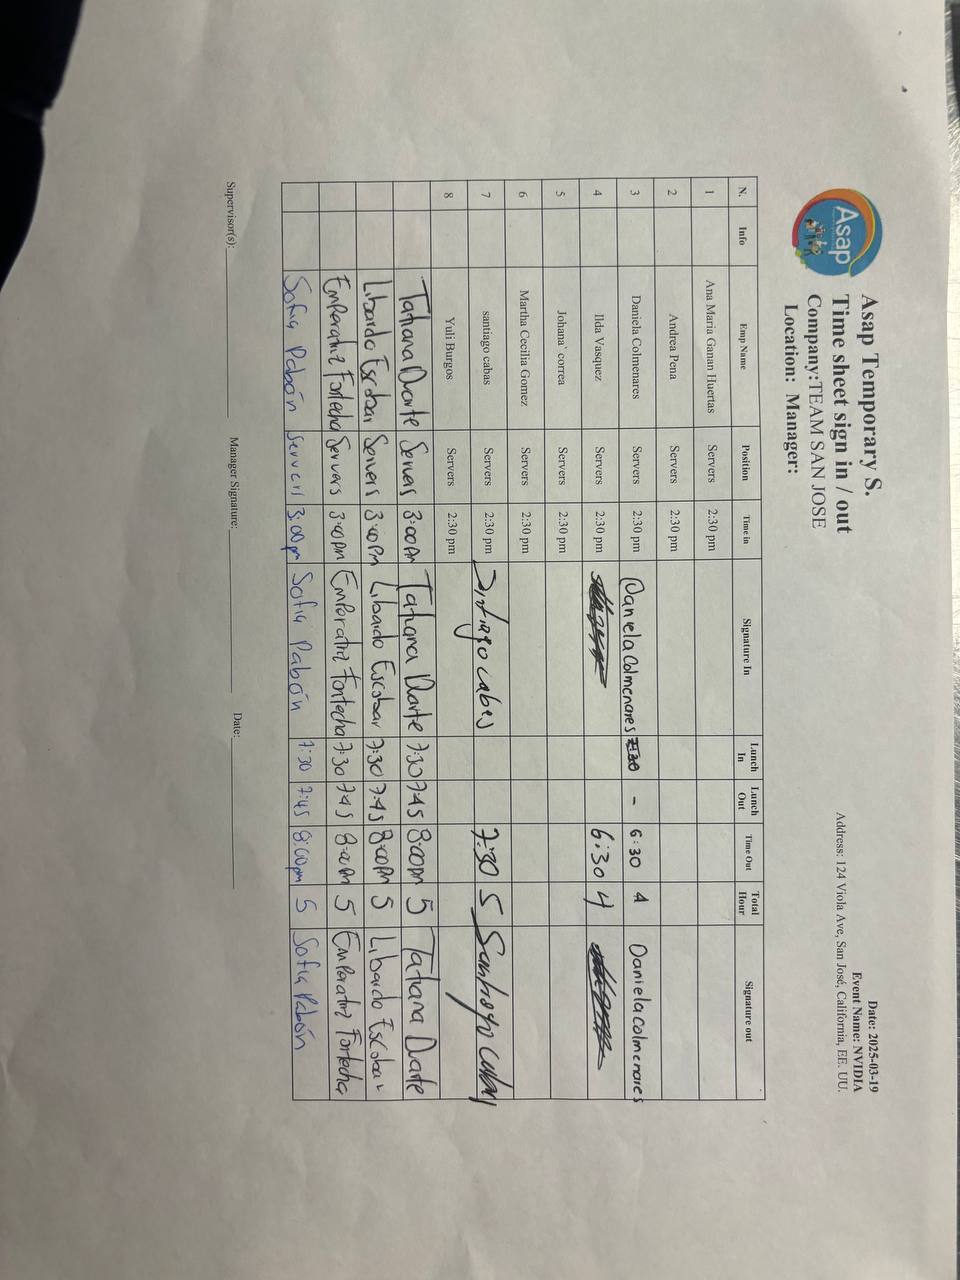 Asap
Asap Temporary S.
Time sheet sign in / out
Company:TEAM SAN JOSE
Location: Manager:
Date: 2025-03-19
Event Name: NVIDIA
Address: 124 Viola Ave, San José, California, EE. UU.
N. Info Emp Name Position Time in Signature In Lunch In Lunch Out Time Out Total Hour Signature out
1 Ana Maria Ganan Huertas Servers 2:30 pm
2 Andrea Pena Servers 2:30 pm
3 Daniela Colmenares Servers 2:30 pm Daniela Colmenares - 6:30 4 Daniela colmenares
4 Ilda Vasquez Servers 2:30 pm 6:30 4
5 Johana` correa Servers 2:30 pm
6 Martha Cecilia Gomez Servers 2:30 pm
7 santiago cabas Servers 2:30 pm 7:30 5
8 Yuli Burgos Servers 2:30 pm
Tatiana Duarte Servers 3:00 Pm Tatiana Duarte 7:30 7:45 8:00pm 5 Tatiana Duarte
Libardo Escobar Servers 3:00 Pm Libardo Escobar 7:30 7:45 8:00Pm 5 Libardo Escobar
Emperatriz Fontecha Servers 3:00 Pm Emperatriz Fontecha 7:30 7:45 8:00 Pm 5 Emperatriz Fontecha
Sofia Pabón Servers 3:00 pm Sofia Pabón 7:30 7:45 8:00pm 5 Sofia Pabón
Supervisor(s): Manager Signature: Date: